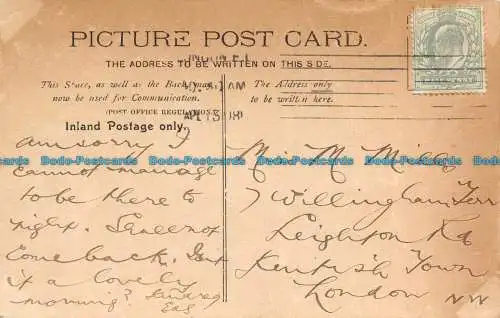 PICTURE POST CARD.
THE ADDRESS TO BE WRITTEN ON THIS SIDE.
This Space, as well as the Back, may
now be used for Communication.
(POST OFFICE REGULATION)
Inland Postage only.
The Address only
to be written here.
AM
AP 13
am sorry I
cannot manage
to be there to
night. Shall not
come back. Isn't
it a lovely
morning?
M. Mills
7 Willingham Terr
Leighton Rd
Kentish Town
London NW
Dodo-Postcards Dodo-Postcards Dodo-Postcards Dodo-Postcards Dodo-Postcards